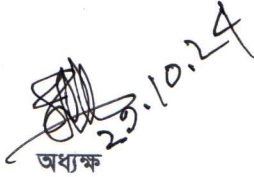 29.10.24
অধ্যক্ষ